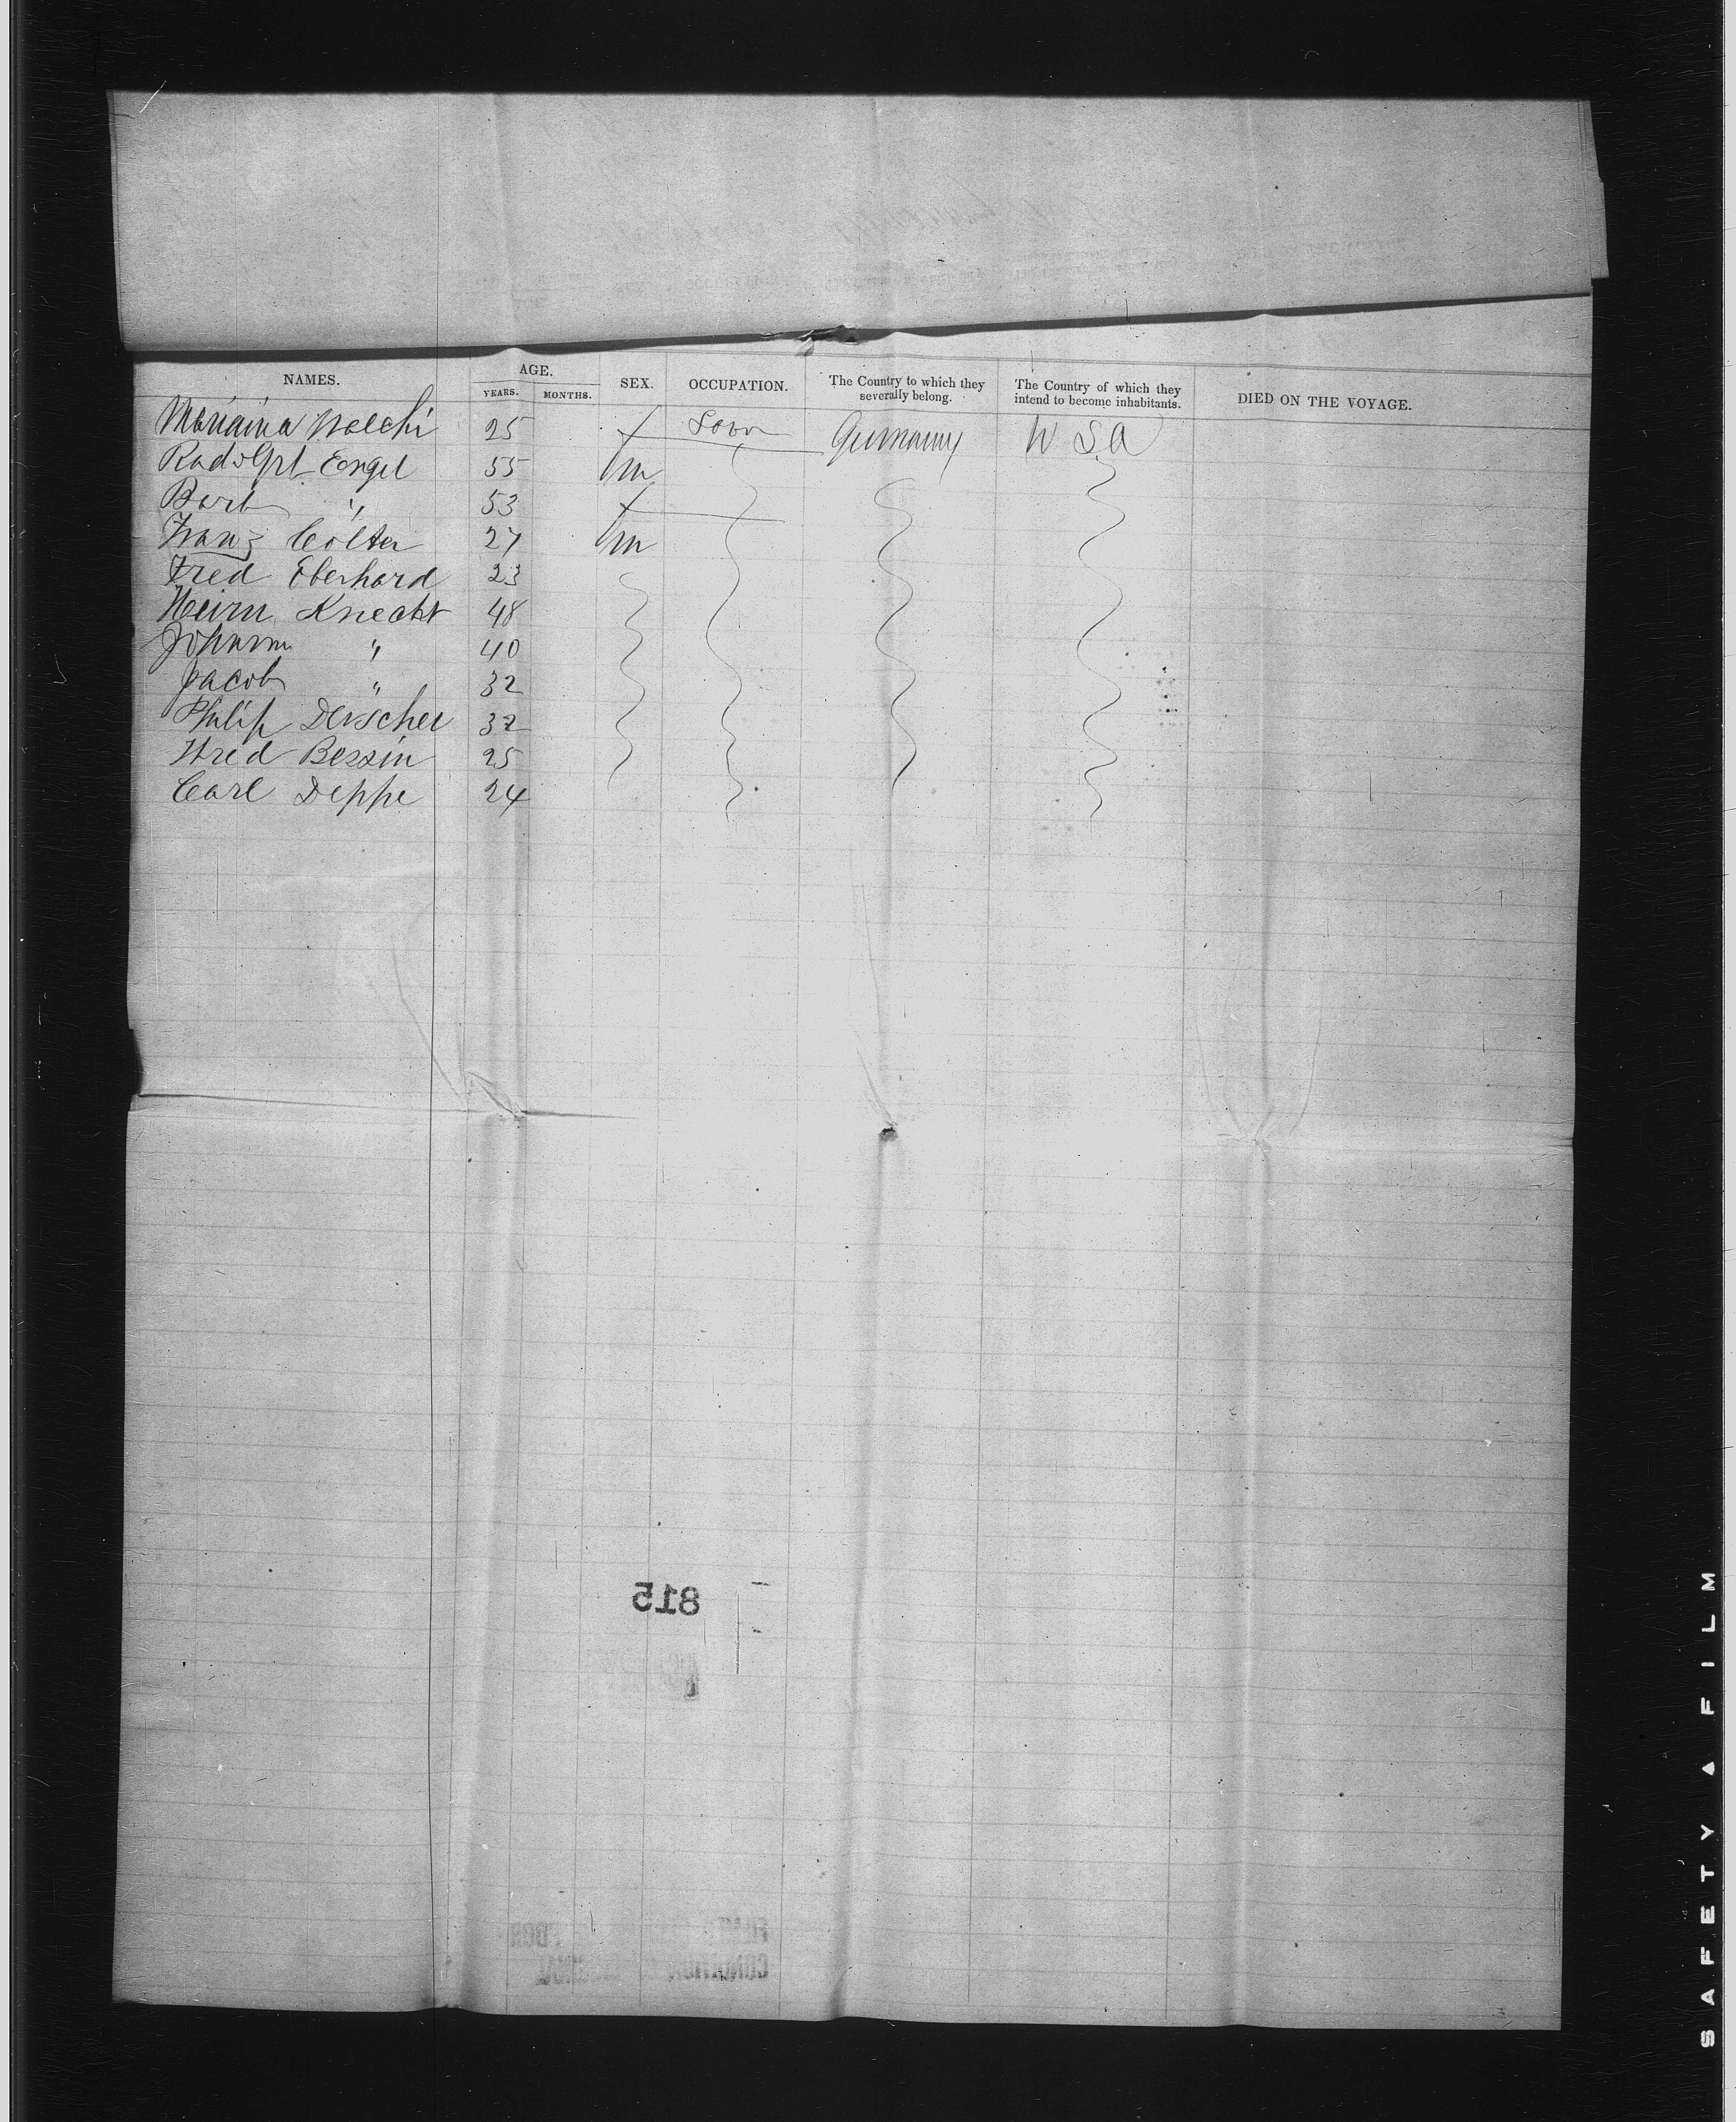 NAMES. AGE. SEX. OCCUPATION. The Country to which they severally belong. The Country of which they intend to become inhabitants. DIED ON THE VOYAGE.
YEARS. MONTHS.
25 Germany U S A
Rudolph Engel 55 m
Barb " 53
Franz Cölter 27 m
Fred Eberhard 23
Heirn Knecht 48
Johann " 40
Jacob " 32
Philip Derscher 32
Fred Bessin 25
Carl Deppe 24
815
SAFETY ▲ FILM